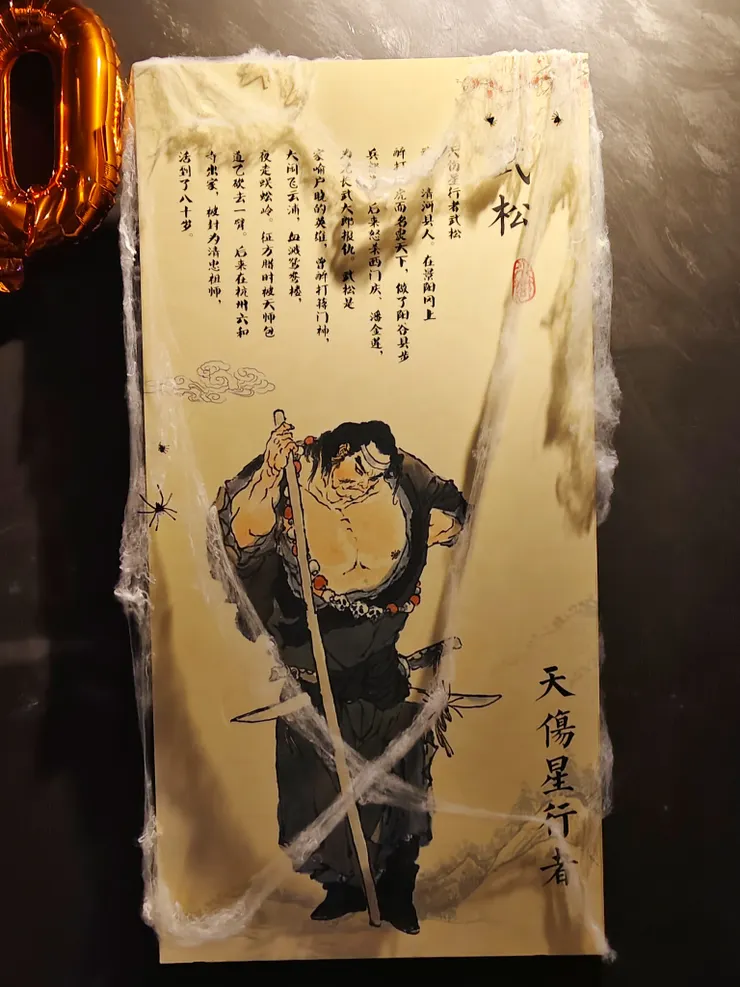 武松
天伤星行者武松
清河县人。在景阳冈上
虎而名忠天下，做了阳谷县步
兵 后来怒杀西门庆、潘金莲，
为兄长武大郎报仇。武松是
家喻户晓的英雄，曾斫打蒋门神，
大闹飞云浦，血溅鸳鸯楼，
夜走蜈蚣岭。征方腊时被天师包
道乙砍去一臂。后来在杭州六和
寺出家，被封为清忠祖师，
活到了八十岁。
天傷星行者
0